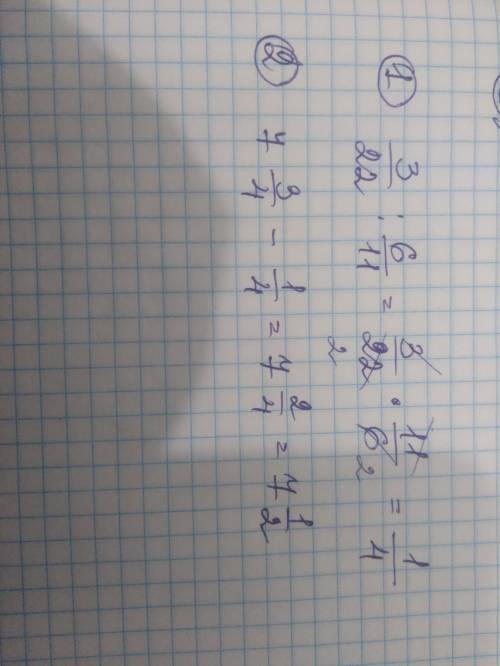 ① 3/22 : 6/11 = 3/22 · 11/6 = 1/4
2 2
② 7 3/4 - 1/4 = 7 2/4 = 7 1/2